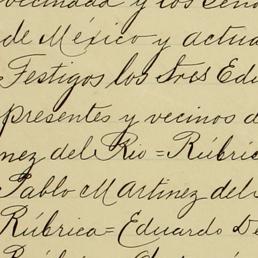 vecindad y los
de México y actua
Testigos los tres Edu
presentes y vecinos d
nez del Rio = Rúbric
Pablo Martinez del
Rúbrica = Eduardo De